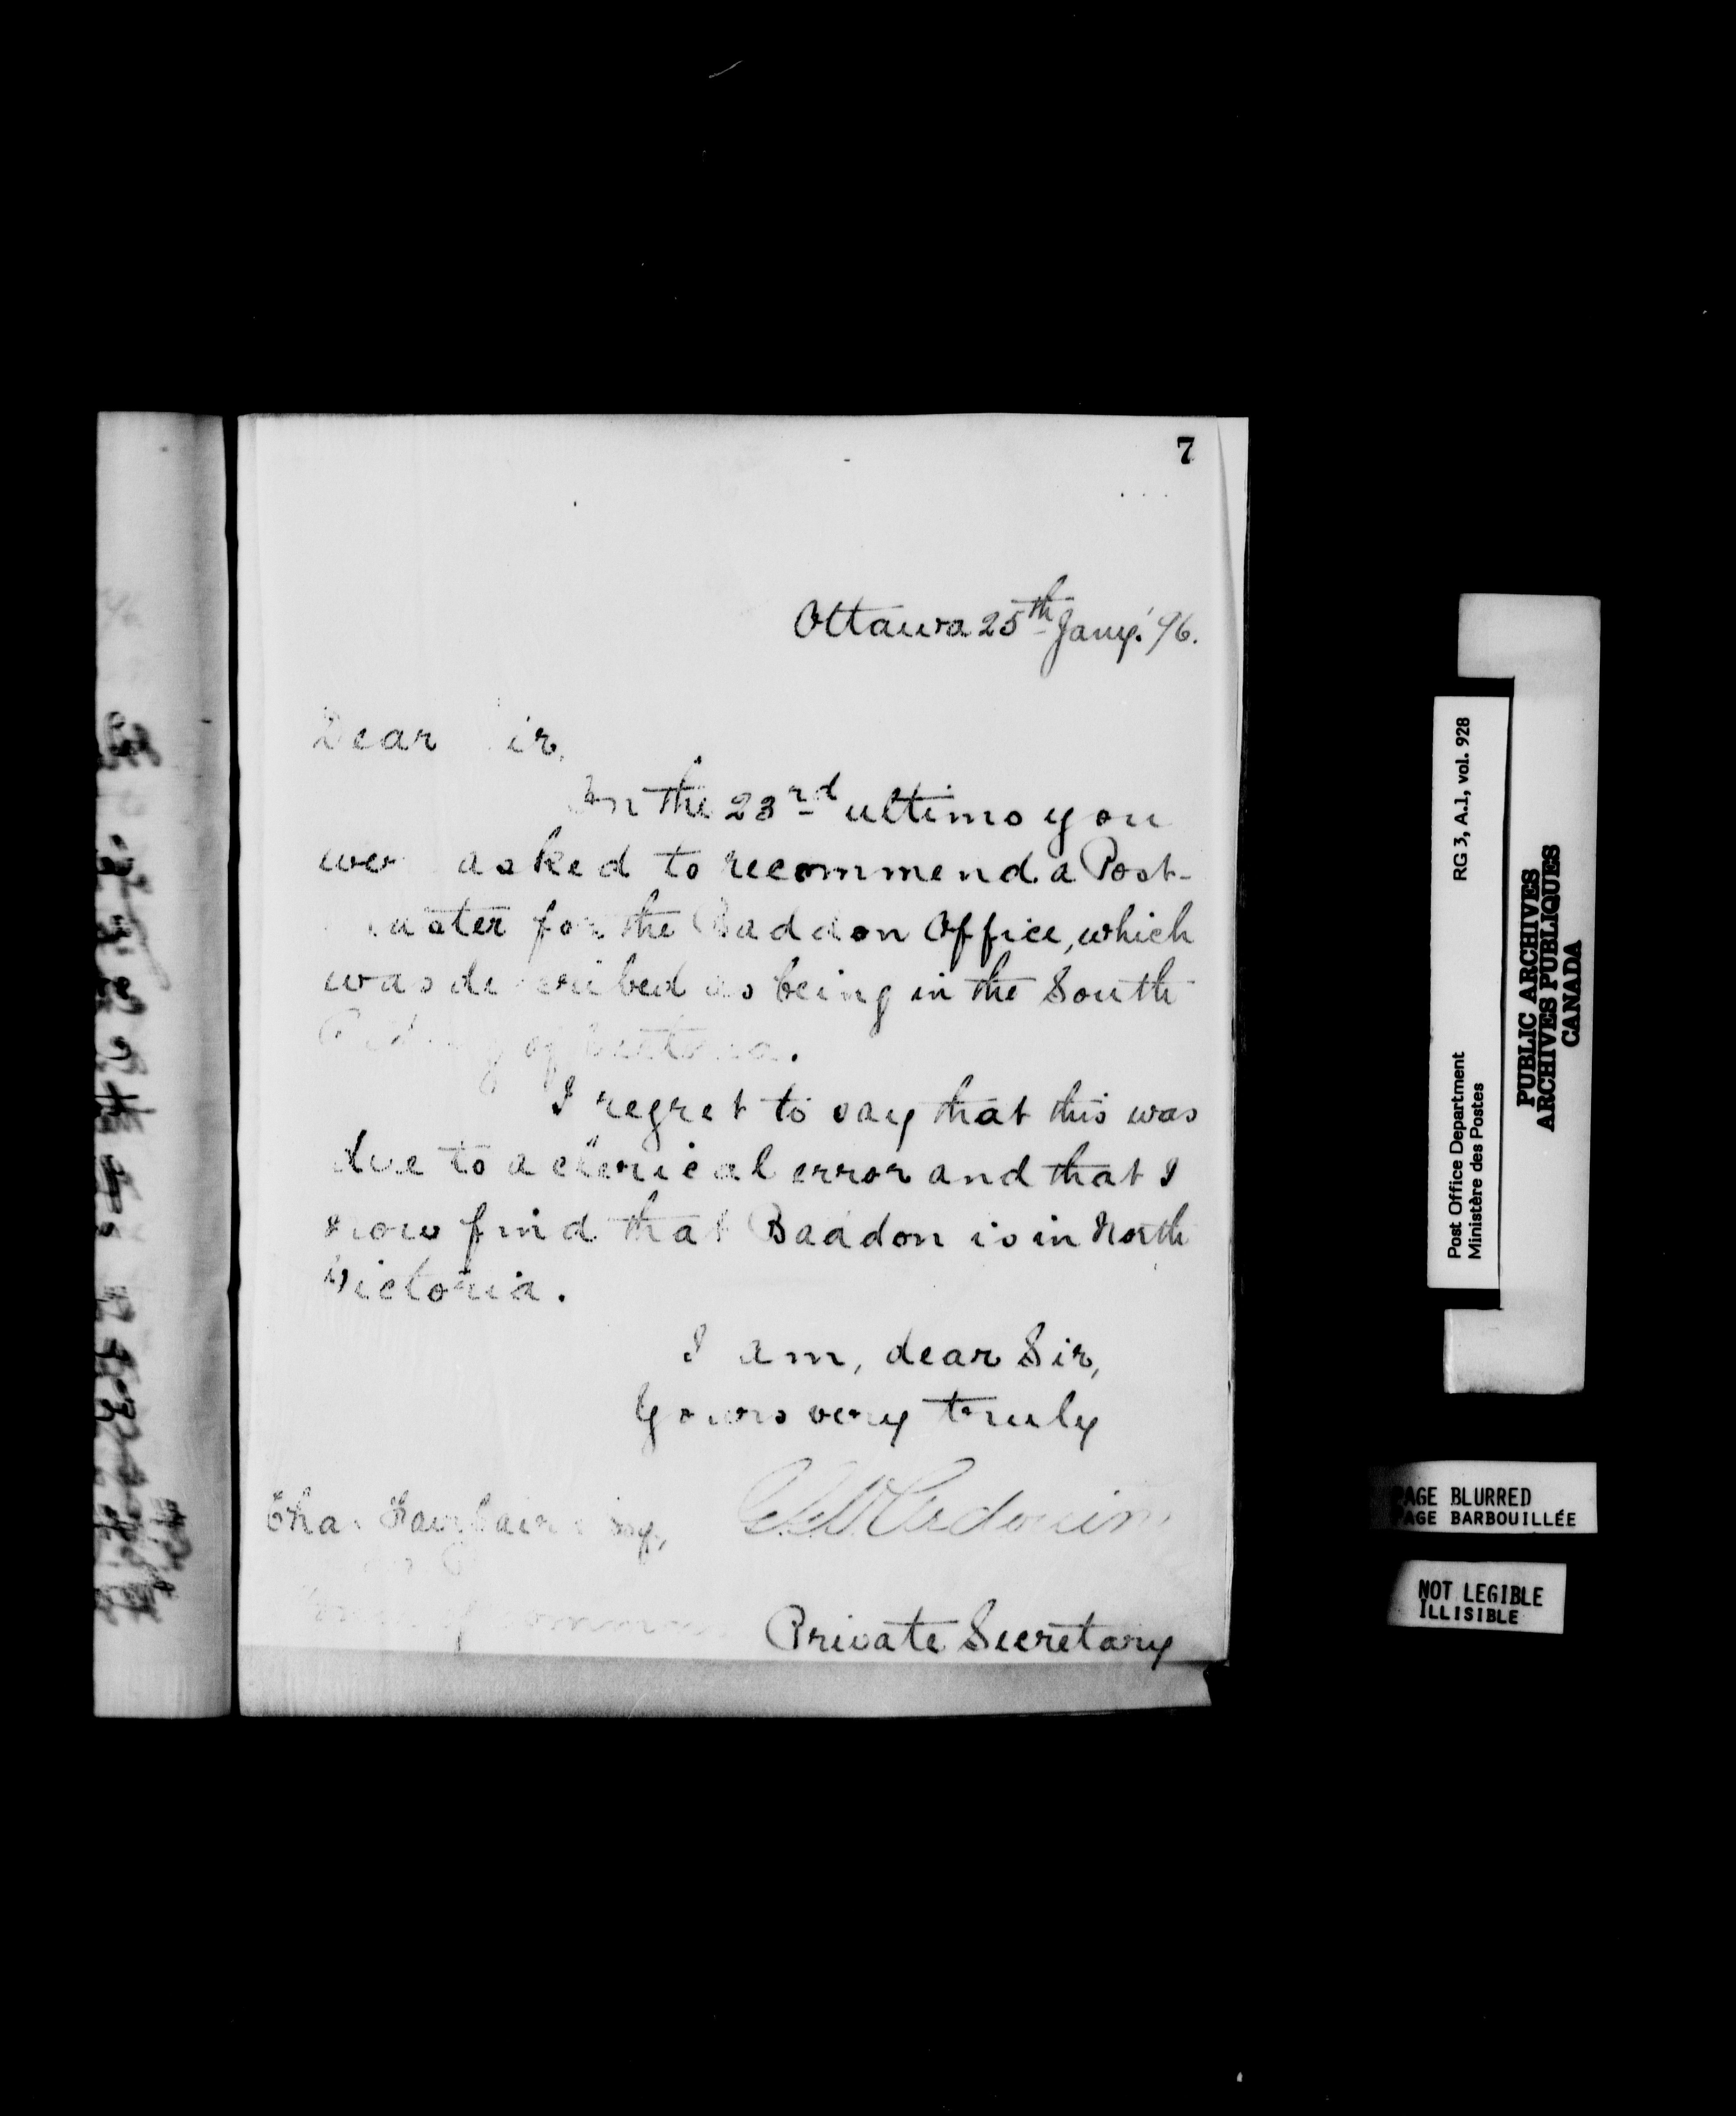 7
Ottawa 25th Jany. '96.
Dear Sir,
On the 23rd ultimo you
were asked to recommend a Post-
master for the Baddon Office, which
was described as being in the South
Riding of Victoria.
I regret to say that this was
due to a clerical error and that I
now find that Baddon is in North
Victoria.
I am, dear Sir,
Yours very truly
Chas Fairbairn Esq,
House of Commons
Private Secretary
Post Office Department RG 3, A.1, vol. 928
Ministère des Postes
PUBLIC ARCHIVES
ARCHIVES PUBLIQUES
CANADA
PAGE BLURRED
PAGE BARBOUILLÉE
NOT LEGIBLE
ILLISIBLE